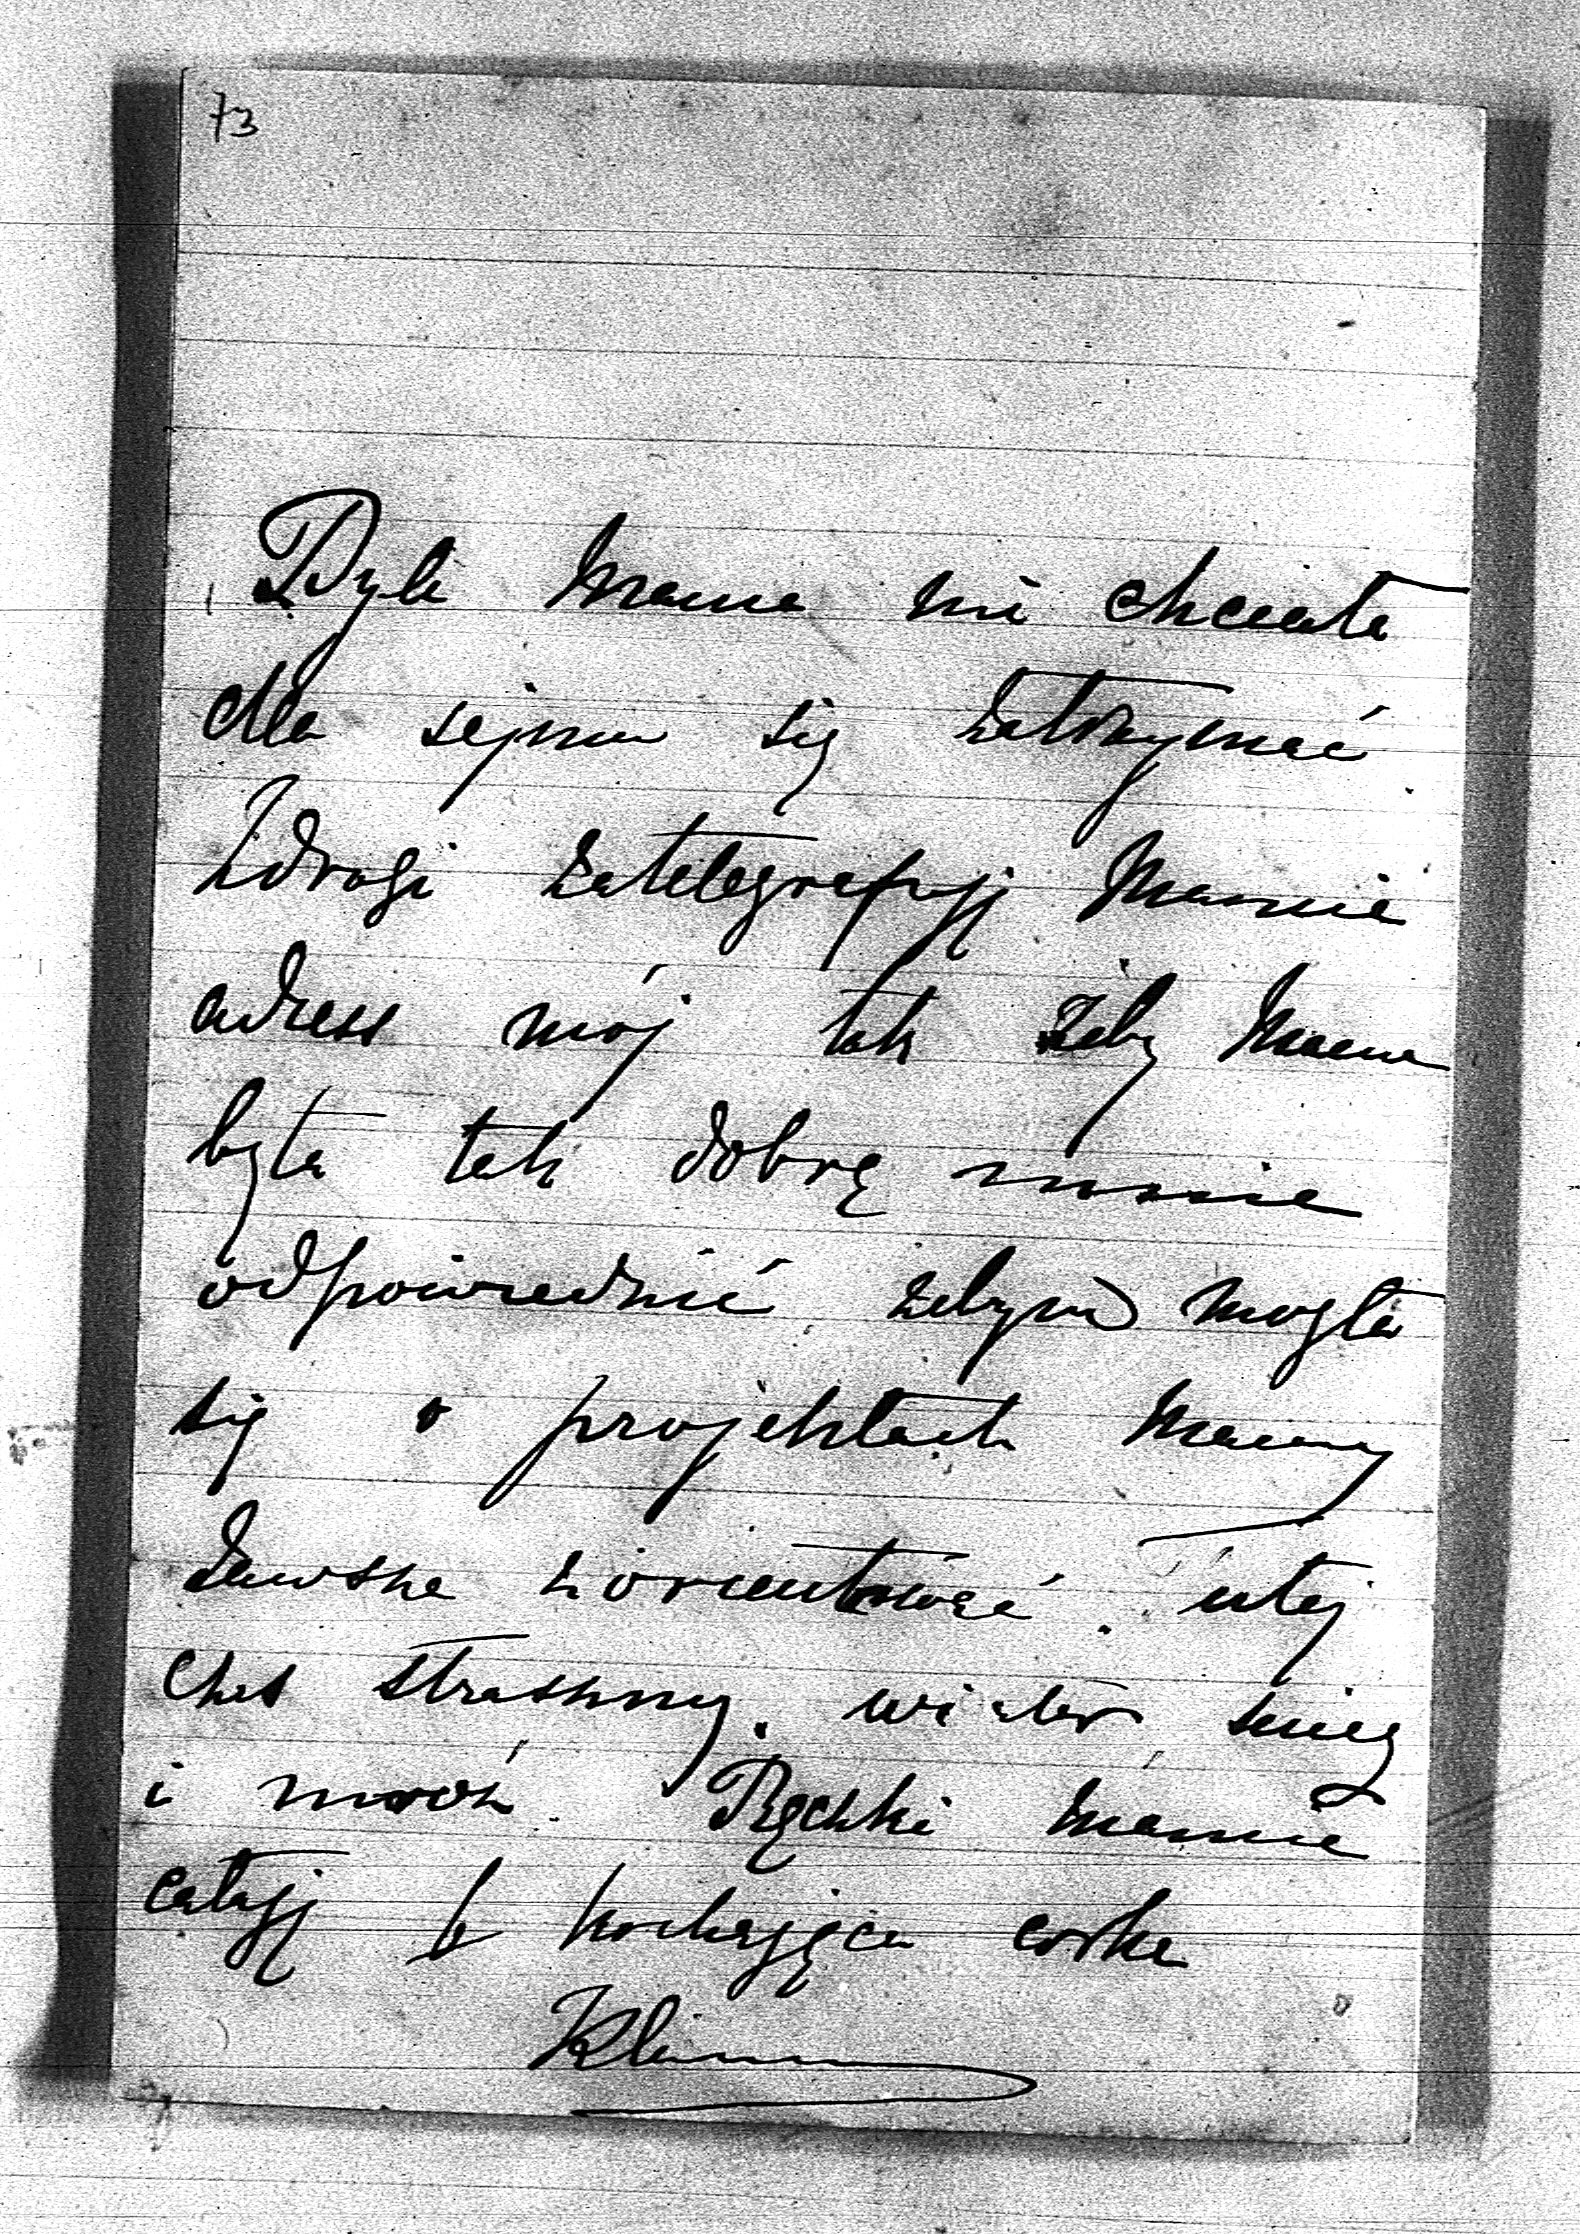 73
Byle Mama nie chciała
dla sejmu się zatrzymać
Zdrogi zatelegrafuję Mamie
adress mój tak żeby Mama
była tak dobrą mnie
odpowiednić żebym mogła
się o projektach Mamy
zawsze zorientować. utaj
czas straszny. wiater śnieg
i mróz Rączki Mamie
całuję kochająca corka